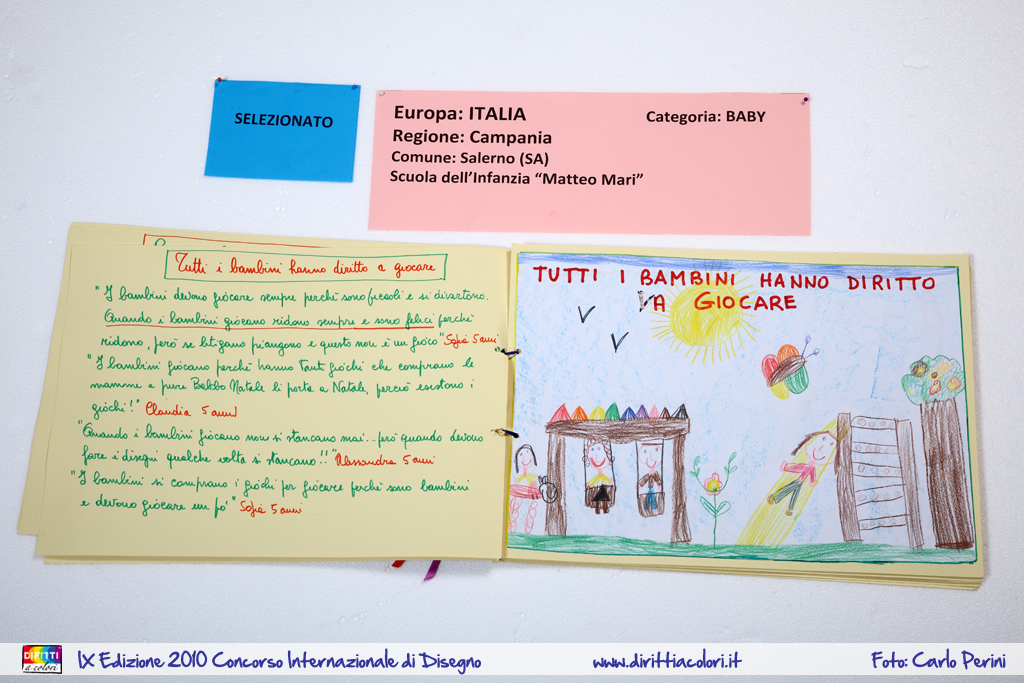 SELEZIONATO
Europa: ITALIA
Categoria: BABY
Regione: Campania
Comune: Salerno (SA)
Scuola dell'Infanzia "Matteo Mari"
Tutti i bambini hanno diritto a giocare
"I bambini devono giocare sempre perchè sono piccoli e si divertono.
Quando i bambini giocano ridono sempre e sono felici perchè
ridono, però se litigano piangono e questo non è un gioco" Sofia 5 anni
"I bambini giocano perchè hanno tanti giochi che comprano le
mamme e pure Babbo Natale li porta a Natale, perciò esistono i
giochi!" Claudia 5 anni
"Quando i bambini giocano non si stancano mai... però quando devono
fare i disegni qualche volta si stancano!!" Alessandra 5 anni
"I bambini si comprano i giochi per giocare perchè sono bambini
e devono giocare un pò" Sofia 5 anni
TUTTI I BAMBINI HANNO DIRITTO
A GIOCARE
DIRITTI
a colori
IX Edizione 2010 Concorso Internazionale di Disegno
www.dirittiacolori.it
Foto: Carlo Perini